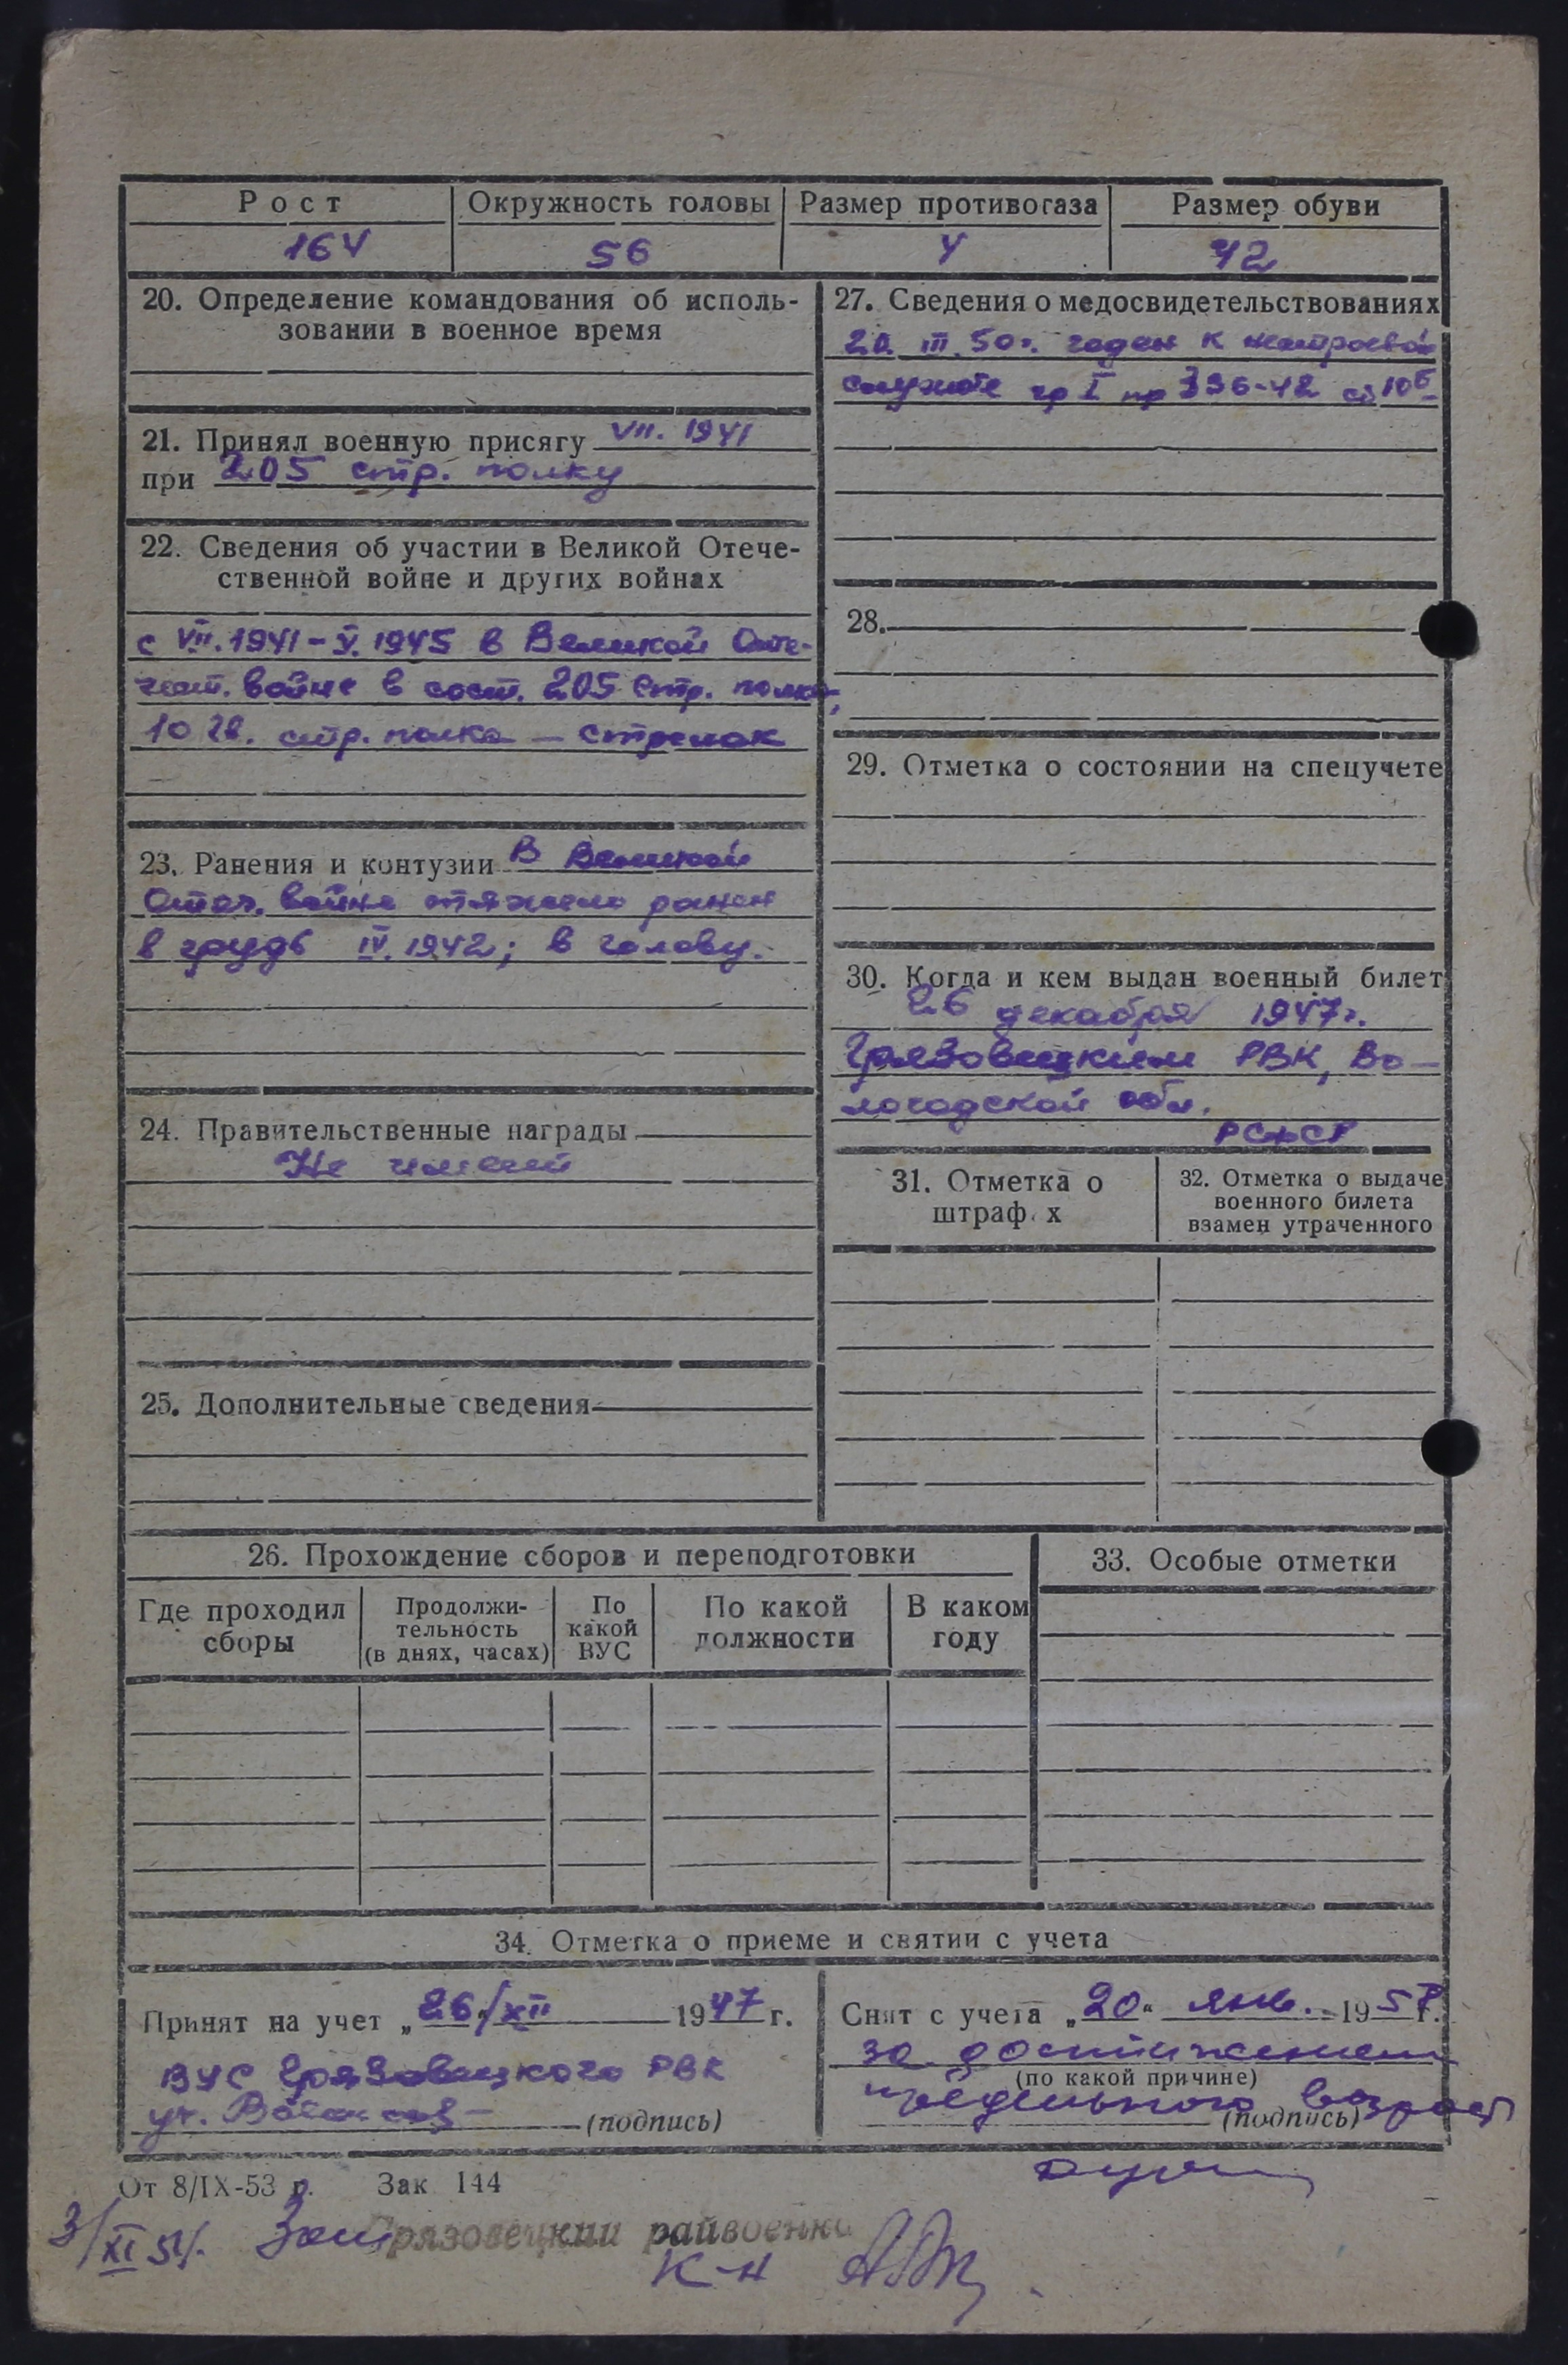 Рост Окружность головы Размер противогаза Размер обуви
164 56 4 42
20. Определение командования об исполь-
зовании в военное время
21. Принял военную присягу VII. 1941
при 205 стр. полку
22. Сведения об участии в Великой Отече-
ственной войне и других войнах
с VII. 1941 - V. 1945 в Великой Оте-
чест. войне в сост. 205 стр. полка,
10 гв. стр. полка — стрелок
23. Ранения и контузии В Великой
Отеч. войне тяжело ранен
в грудь IV. 1942; в голову.
24. Правительственные награды
Не имеет
25. Дополнительные сведения
27. Сведения о медосвидетельствованиях
20. III. 50 г. годен к нестроевой
службе гр I пр 336-42 ст 10б
28.
29. Отметка о состоянии на спецучете
30. Когда и кем выдан военный билет
26 декабря 1947 г.
Грязовецким РВК, Во-
логодской обл.
РСФСР
31. Отметка о
штраф х
32. Отметка о выдаче
военного билета
взамен утраченного
26. Прохождение сборов и переподготовки
Где проходил
сборы
Продолжи-
тельность
(в днях, часах)
По
какой
ВУС
По какой
должности
В каком
году
33. Особые отметки
34. Отметка о приеме и снятии с учета
Принят на учет „26/XII 1947 г.
ВУС Грязовецкого РВК
(подпись)
Снят с учета „20“ янв. 195 г.
за достижением
(по какой причине)
предельного возраст
(подпись)
От 8/IX-53 г. Зак 144
3/XI 54.
Грязовецкий райвоенко
к-н